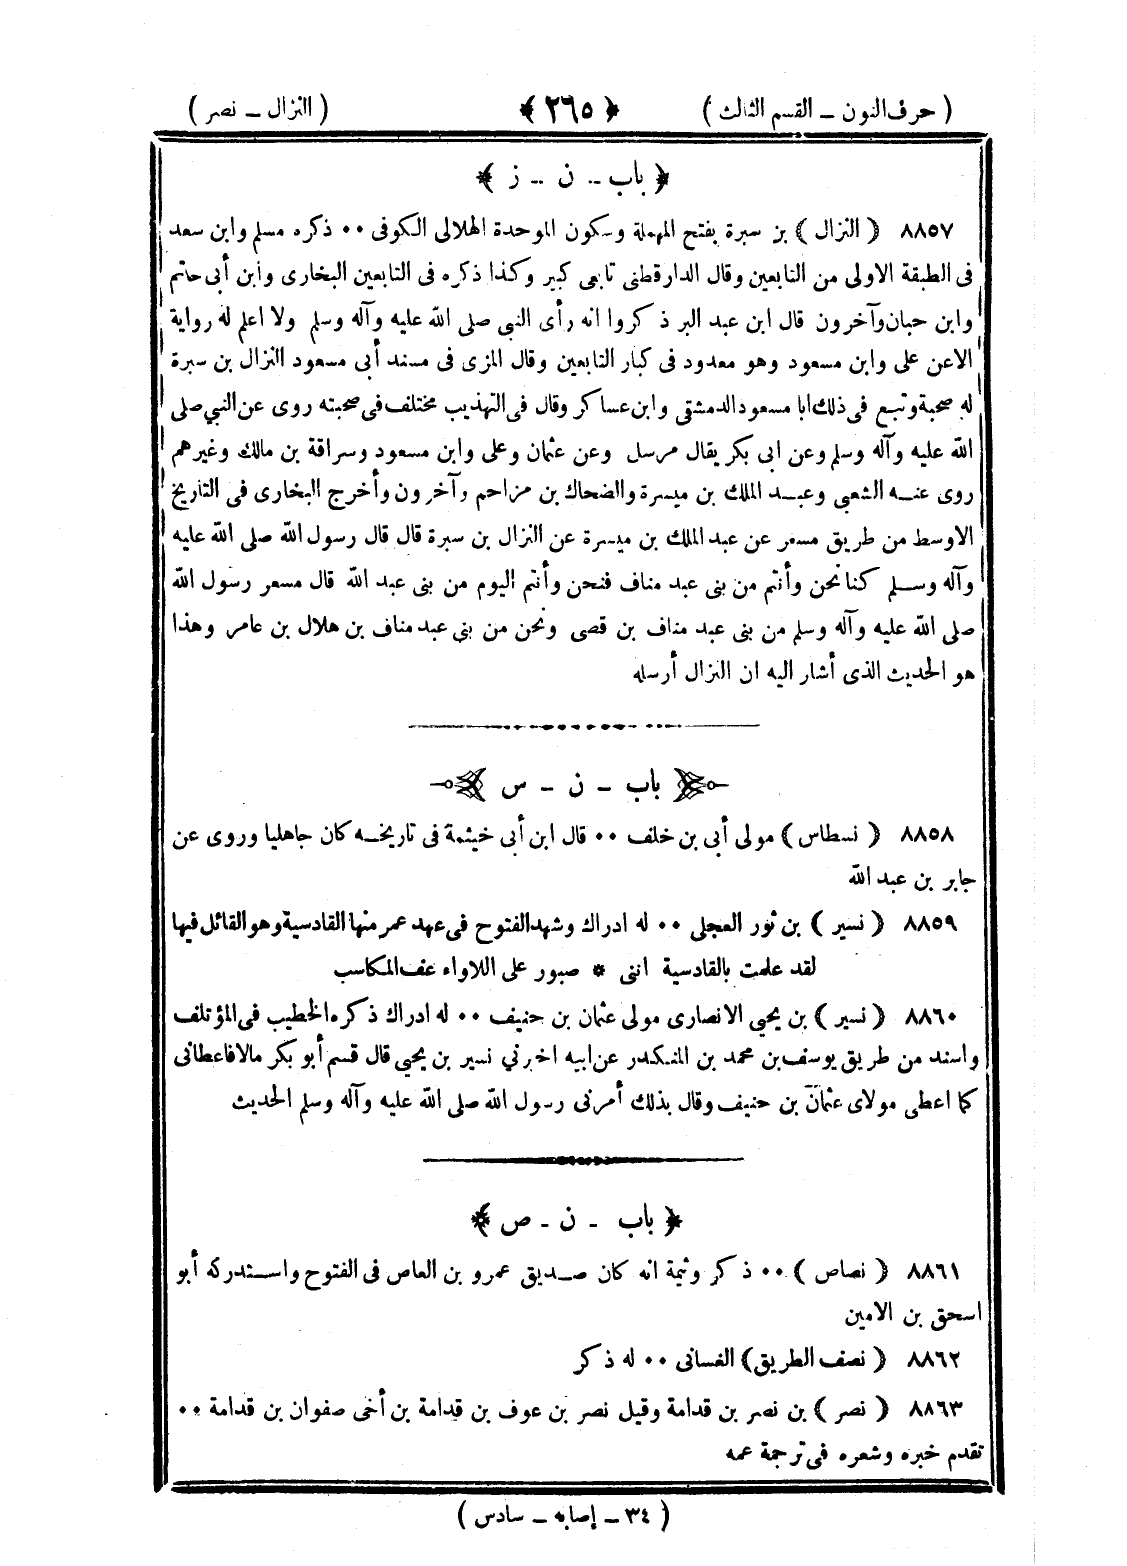 ( حرف النون ــ القسم الثالث )
﴿ ٢٦٥ ﴾
( النزال ــ نصر )
﴿ باب .. ن .. ز ﴾
٨٨٥٧ ( النزال ) بن سبرة بفتح المهملة وسكون الموحدة الهلالى الكوفى ٠٠ ذكره مسلم وابن سعد
فى الطبقة الاولى من التابعين وقال الدارقطنى تابعى كبير وكذا ذكره فى التابعين البخارى وابن أبى حاتم
وابن حبان وآخرون قال ابن عبد البر ذكروا انه رأى النبى صلى الله عليه وآله وسلم ولا اعلم له رواية
الاعن على وابن مسعود وهو معدود فى كبار التابعين وقال المزى فى مسند أبى مسعود النزال بن سبرة
له صحبة وتبع فى ذلك ابا مسعود الدمشقى وابن عساكر وقال فى التهذيب مختلف فى صحبته روى عن النبي صلى
الله عليه وآله وسلم وعن ابى بكر يقال مرسل وعن عثمان وعلى وابن مسعود وسراقة بن مالك وغيرهم
روى عنه الشعبى وعبد الملك بن ميسرة والضحاك بن مزاحم وآخرون وأخرج البخارى فى التاريخ
الاوسط من طريق مسعر عن عبد الملك بن ميسرة عن النزال بن سبرة قال قال رسول الله صلى الله عليه
وآله وسلم كنا نحن وأنتم من بنى عبد مناف فنحن وأنتم اليوم من بنى عبد الله قال مسعر رسول الله
صلى الله عليه وآله وسلم من بنى عبد مناف بن قصى ونحن من بنى عبد مناف بن هلال بن عامر وهذا
هو الحديث الذى أشار اليه ان النزال أرسله
باب ــ ن ــ س
٨٨٥٨ ( نسطاس ) مولى أبى بن خلف ٠٠ قال ابن أبى خيثمة فى تاريخه كان جاهليا وروى عن
جابر بن عبد الله
٨٨٥٩ ( نسير ) بن ثور العجلى ٠٠ له ادراك وشهد الفتوح فى عهد عمر منها القادسية وهو القائل فيها
لقد علمت بالقادسية اننى * صبور على اللاواء عف المكاسب
٨٨٦٠ ( نسير ) بن يحيى الانصارى مولى عثمان بن حنيف ٠٠ له ادراك ذكره الخطيب فى المؤتلف
واسند من طريق يوسف بن محمد بن المنكدر عن ابيه اخبرني نسير بن يحيى قال قسم أبو بكر مالا فاعطانى
كما اعطى مولاى عثمان بن حنيف وقال بذلك أمرنى رسول الله صلى الله عليه وآله وسلم الحديث
﴿ باب ــ ن ــ ص ﴾
٨٨٦١ ( نصاص ) ٠٠ ذكر وثيمة انه كان صديق عمرو بن العاص فى الفتوح واستدركه أبو
اسحق بن الامين
٨٨٦٢ ( نصف الطريق) الغسانى ٠٠ له ذكر
٨٨٦٣ ( نصر ) بن نصر بن قدامة وقيل نصر بن عوف بن قدامة بن أخى صفوان بن قدامة ٠٠
تقدم خبره وشعره فى ترجمة عمه
( ٣٤ ــ إصابه ــ سادس )